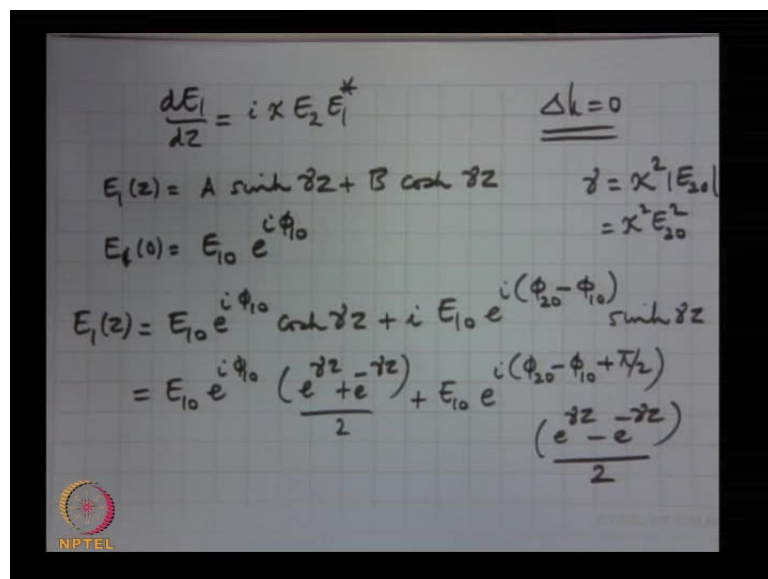 dE₁/dz = i x E₂ E₁*    Δk = 0
E₁(z) = A sinh γz + B cosh γz    γ = x² |E₂₀|
E₁(0) = E₁₀ e^{iφ₁₀}    = x² E₂₀²
E₁(z) = E₁₀ e^{iφ₁₀} cosh γz + i E₁₀ e^{i(φ₂₀ - φ₁₀)} sinh γz
= E₁₀ e^{iφ₁₀} (e^{γz} + e^{-γz})/2 + E₁₀ e^{i(φ₂₀ - φ₁₀ + π/2)} (e^{γz} - e^{-γz})/2
NPTEL